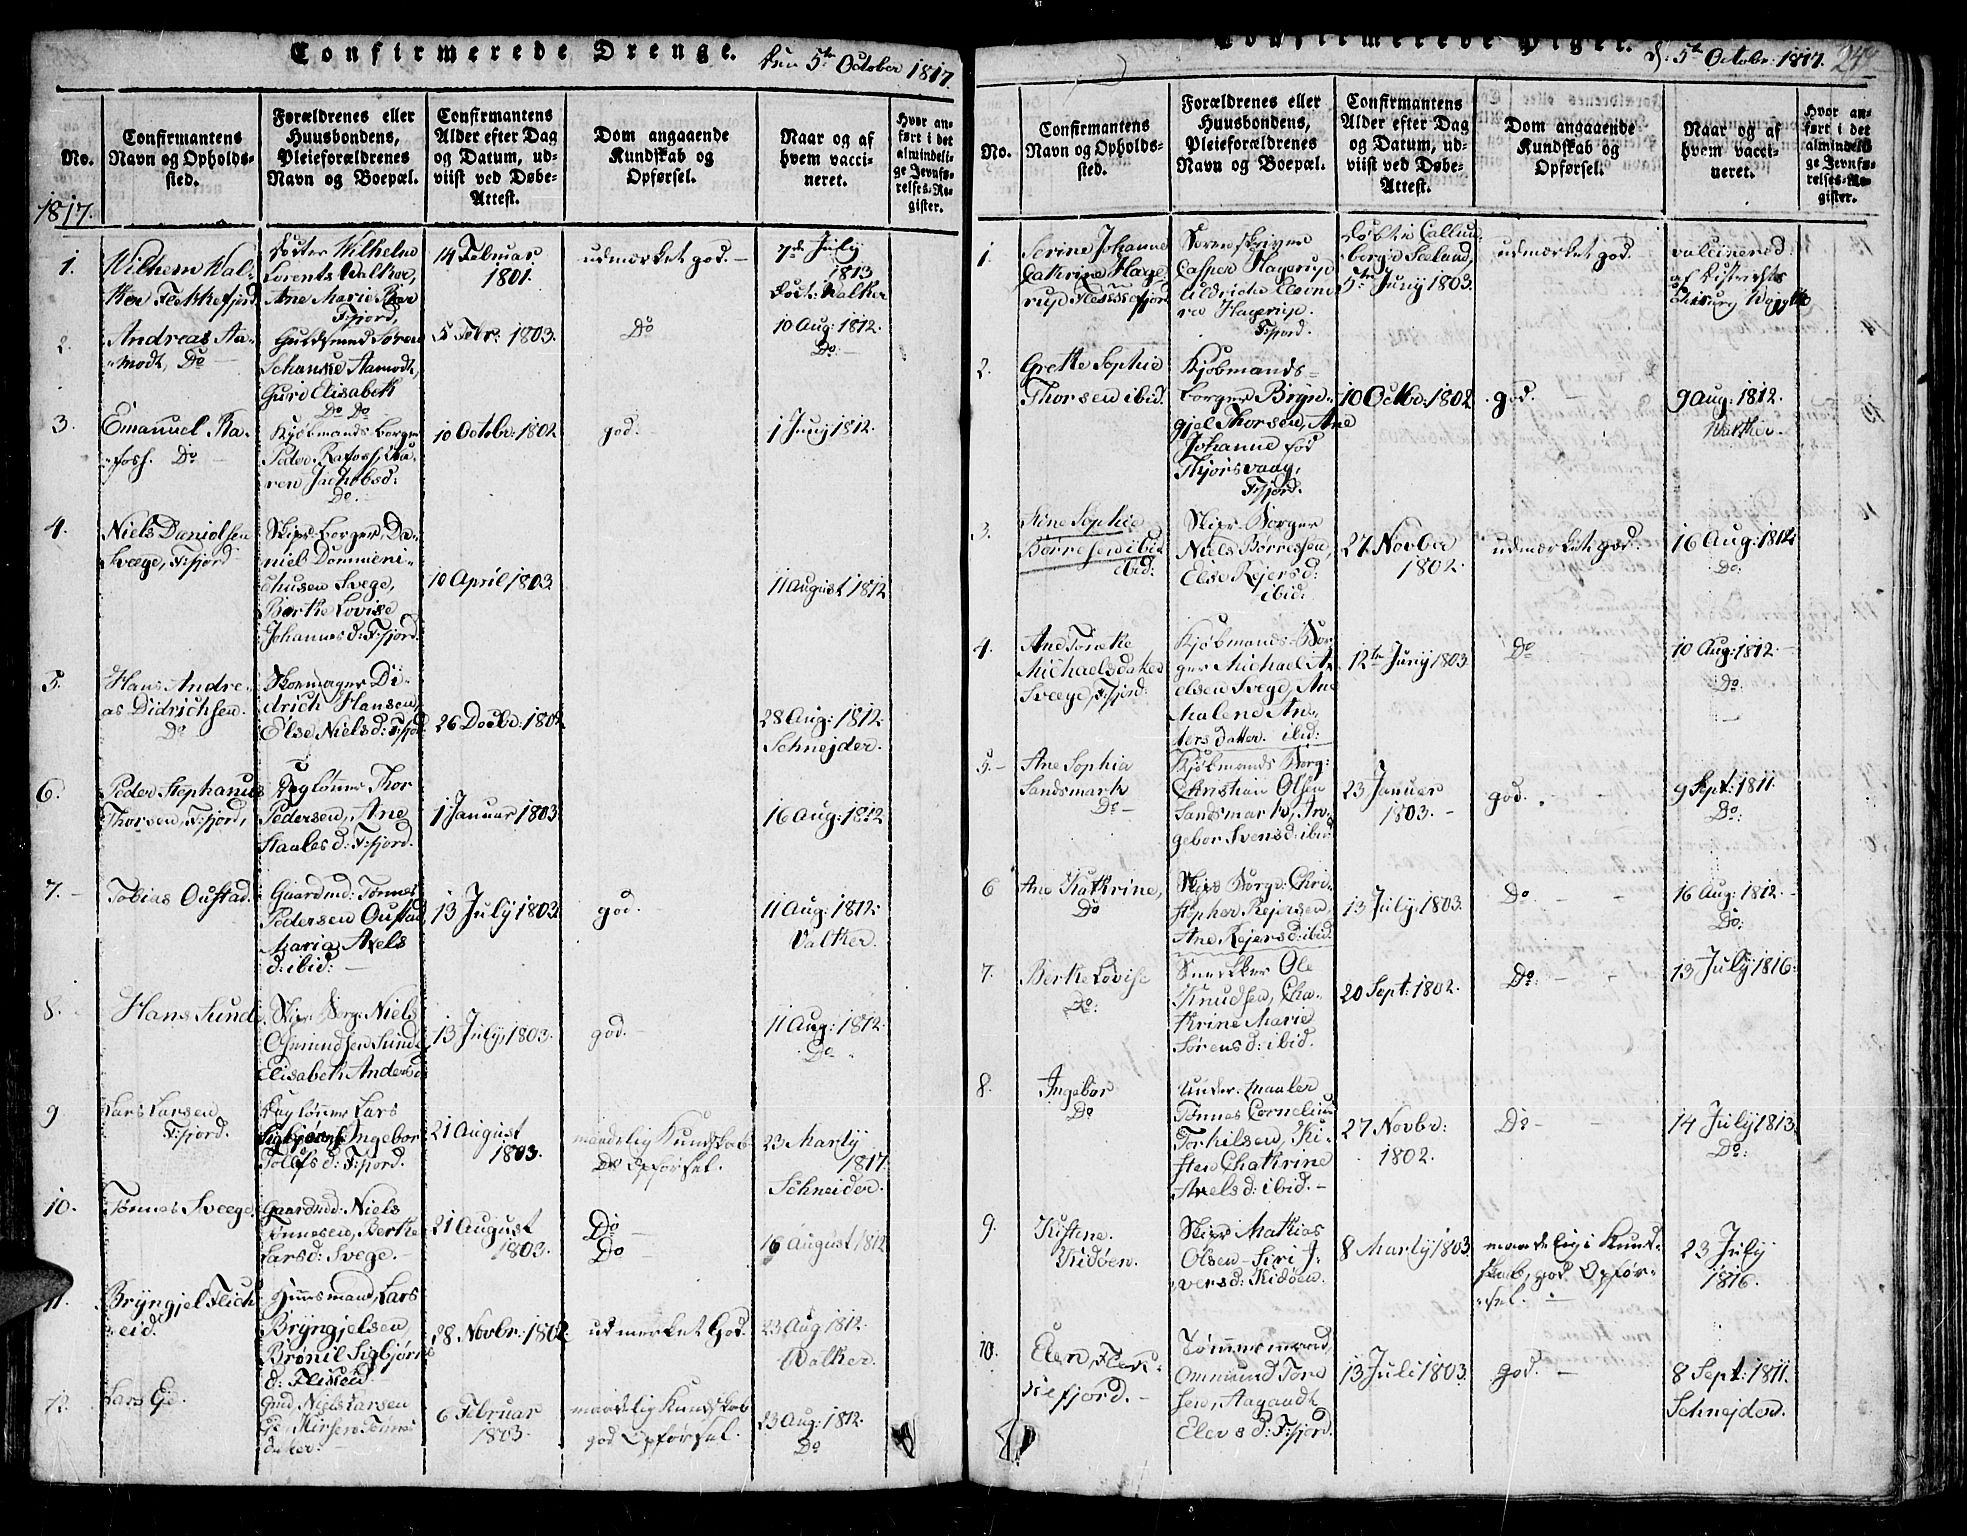 Confirmerede Drenge. den 5te October 1817.
No.
Confirmantens
Navn og Opholds-
sted.
Forældrenes eller
Huusbondens,
Pleieforældrenes
Navn og Boepæl.
Confirmantens
Alder efter Dag
og Datum, ud-
viist ved Døbe-
Attest.
Dom angaaende
Kundskab og
Opførsel.
Naar og af
hvem vacci-
neret.
Hvor an-
ført i det
almindeli-
ge Jevnfø-
relses-Re-
gister.
1817.
1.
Wilhem Wal-
ker Flekkefjord
Wilhelm
Lorents Walker,
Ane Marie
Fjord
14 Februar
1801.
udmærket god. -
7de July
1813
Doct: Walker
2.
Andreas Aa-
modt, Do
Guldsmed Søren
Schanke Aamodt,
Guro Elisabeth
Do Do
5 Febr: 1803.
Do
10 Aug: 1812.
Do. -
3.
Emanuel Ra-
foss. Do -
Kjøbmands borger
Peder Rafoss, Ka-
ren Jachobsd:
Do. -
10 Octobr: 1802
god.
1 Juny 1812.
4.
Niels Danielsen
Svege, F:fjord
Skips-borger Da-
niel
Svege,
Berthe Lovise
Johannesd: F:fjord.
10 April 1803.
11 August 1812
5.
Hans Andre-
as Didrichsen.
Do
Skomager Di-
drich Hansen,
Else Nielsd: F:fjord
26 Decbr: 1802
28 Aug: 1812.
Schnejder.
6.
Peder Stephanus
Thorsen, F:fjord,
Dagløner Thor
Pedersen, Ane
Staalesd: F:fjord.
1 Januar 1803.
16 Aug: 1812
7. -
Tobias Oustad.
Gaardmd: Tønnes
Pedersen Oustad
Maria Axels
d: ibid: -
13 July 1803.
god. -
11 Aug: 1812.
Valker.
8. -
Hans Sunde
Skips Borg: Niels
Osmundsen Sunde
Elisabeth Andersd
13 July, 1803.
god. -
11 Aug: 1812.
Do
9
Lars Larsen
F:fjord.
Dagløner Lars
Sigbjørns, Ingebor
Tollefsd: F:fjord.
21 August
1803.
maadelig Kundskab
Do Opførsel.
23 Marty
1817.
Schneider.
10.
Tønnes Sveege
Gaardmd: Niels
Tønnesen, Berthe
Larsd: Svege. -
21 August
1803.
Do
Do
16 August 1812
11.
Bryngjel Flich
eid.
Huusmand, Lars
Bryngjelsen
Brønil Sigbjørns
d: Fliseid
28 Novbr: 1802
udmerket God.
23 Aug 1812.
Valker.
12.
Lars Eje.
Gmd Niels Larsen
Tønnes
datter. -
6 Februar
1803.
maadelig Kundskab
god Opførsel.
23 Aug: 1812.
Do
Confirmerede Piger. d: 5te Octobr: 1817. 249
No.
Confirmantens
Navn og Opholds-
sted.
Forældrenes eller
Huusbondens,
Pleieforældrenes
Navn og Boepæl.
Confirmantens
Alder efter Dag
og Datum, ud-
viist ved Døbe-
Attest.
Dom angaaende
Kundskab og
Opførsel.
Naar og af
hvem vacci-
neret.
Hvor an-
ført i det
almindeli-
ge Jevnfø-
relses-Re-
gister.
1.
Serine Johanne
Cathrine Hage-
rup
Sorenskriver
Casper Hagerup
Uldriche Eleono
ra Hagerup.
F:fjord.
Døbt i Callund-
borg i Seeland,
5te Juny 1803.
udmærket god.
vaccinered
af
2.
Grette Sophie
Thorsen ibid.
Kjøbmands-
borger Bryn-
gjel Thorsen, Ane
Johanne fød
Fjorsvaag,
F:fjord.
10 Octbr: 1802
god. -
9 Aug: 1812.
Walker.
3.
Stine Sophie
Børresen ibid
ibid:
Skips-Borger
Niels Børressen,
Else Rejersd:
ibid:
27 Novber
1802.
udmærket god.
16 Aug: 1812.
Do:
4.
Ane Tomeke
Michaelsdatter
Sveege, F:fjord.
Kjøbmands-Bor-
ger Michael A-
elsen Svege, Ane
Malene An-
ders datter. ibid:
12te Juny 1803.
Do
10 Aug: 1812. -
Do:
5. -
Ane Sophia
Sandsmark
Do -
Kjøbmands Borg:
Christian Olsen
Sandsmark, In-
gebor Svensd: ibid
23 Januar
1803. -
god.
9 Sept: 1811.
Do:
6
Ane Kathrine,
Do
Skips Borg: Chri-
stopher Rejersen,
Ane Rejersd: ibid:
13 July, 1803.
Do -
16 Aug: 1812. -
Do:
7.
Berthe Lovise
Do:
Snedker Ole
Knudsen, Cha-
thrine Marie
Sørensd: ibid.
20 Sept: 1802.
Do: -
13 July 1816.
8.
Ingebor
Do
Under-Maaler
Tønnes Cornelius
Torkilsen, Ki-
sten Chatrine
Axelsd: ibid. -
27 Novbr:
1802.
Do -
14 July 1813.
Do:
9.
Kistine.
Kidøen.
Skips Mathias
Olsen - Siri I-
versd: Kidøen.
8 Marty 1803
maadelig i Kund-
skab, god Opfør-
sel. -
23 July
1816.
10.
Elen, Flek-
kefjord. -
Tømmermand,
Ommund Tore
sen, Aagaadt
Elers d: F:fjord.
13 Juli 1803.
god. -
8 Sept: 1811.
Schnejder.